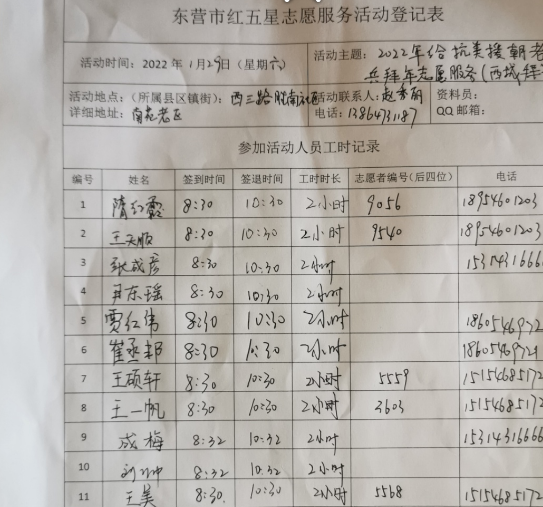 东营市红五星志愿服务活动登记表
活动时间：2022年1月29日（星期六） 活动主题：2022年给抗美援朝老
兵拜年志愿服务（西城
活动地点：（所属县区镇街）：西三路胜南社区 活动联系人：赵秀丽 资料员：
详细地址：南苑老区 电话：13864731187 QQ邮箱：
参加活动人员工时记录
编号 姓名 签到时间 签退时间 工时时长 志愿者编号（后四位） 电话
1 隋红霞 8:30 10:30 2小时 9056 18954601203
2 王天顺 8:30 10:30 2小时 9540 18954601203
3 张成彦 8:30 10:30 2小时 1531431666
4 尹东瑶 8:30 10:30 2小时
5 贾红伟 8:30 10:30 2小时 1860546972
6 崔丞邦 8:30 10:30 2小时 18605469721
7 王硕轩 8:30 10:30 2小时 5559 15154685172
8 王一帆 8:30 10:30 2小时 3603 15154685172
9 成梅 8:32 10:32 2小时 15314316666
10 8:32 10:32 2小时
11 王美 8:30 10:30 2小时 5568 15154685172